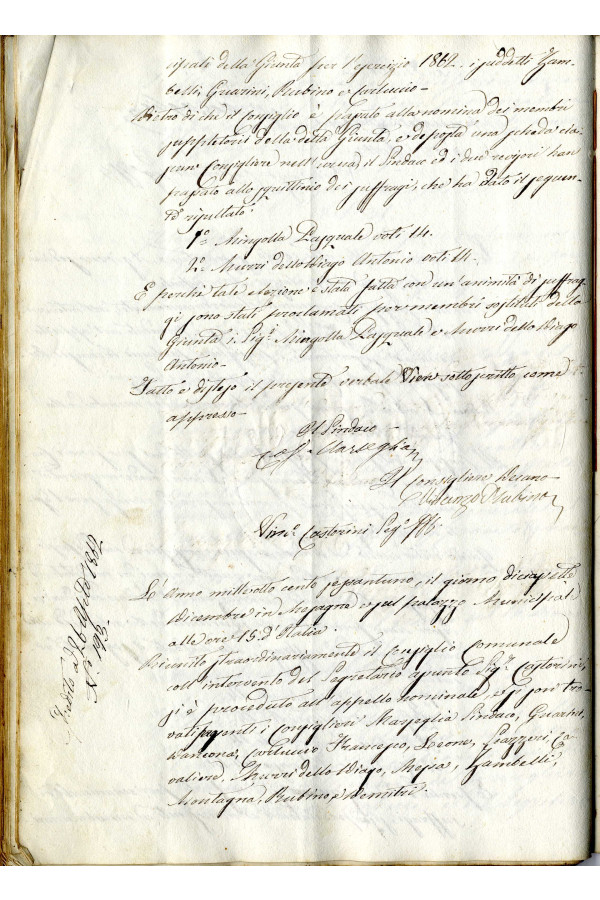 cipali della Giunta per l'esercizio 1862 i suddetti Zam-
belli, Guarini, Rubino e Carluccio-
Dietro di che il Consiglio è passato alla nomina dei membri
suppletorii della detta Giunta, e deposta una scheda cia-
scun Consigliere nell'urna, il Sindaco ed i due revisori han
passato allo squittinio dei suffragi, che ha dato il seguen-
te risultato:
1.° Mingolla Pasquale voti 14.
2.° Murri dello Diego Antonio voti 14.
E perchè tale elezione è stata fatta con un'animità di suffrag-
gi sono stati proclamati per membri sostituti della
Giunta i Sig.i Mingolla Pasquale e Murri dello Diego
Antonio-
Fatto e disteso il presente verbale Vien sottoscritto come
appresso-
Il Sindaco
Marseglia
Il Consigliere Anziano
Rubino
Vinc.o Costorini Seg.o
L'Anno mille otto cento sessantuno, il giorno diciasette
Dicembre in Mesagne e sul palazzo Municipale
alle ore 15 d'Italia.
Riunito straordinariamente il Consiglio Comunale
coll'intervento del Segretario Sig.r Costorini,
si è proceduto all'appello nominale, e si son tro-
vati presenti i Consiglieri Marseglia Sindaco, Guarini,
Carluccio Leone, Ca-
valiere, Murri dello Diego, Zambelli,
Montagna, Rubino, e
1862
N.° 196